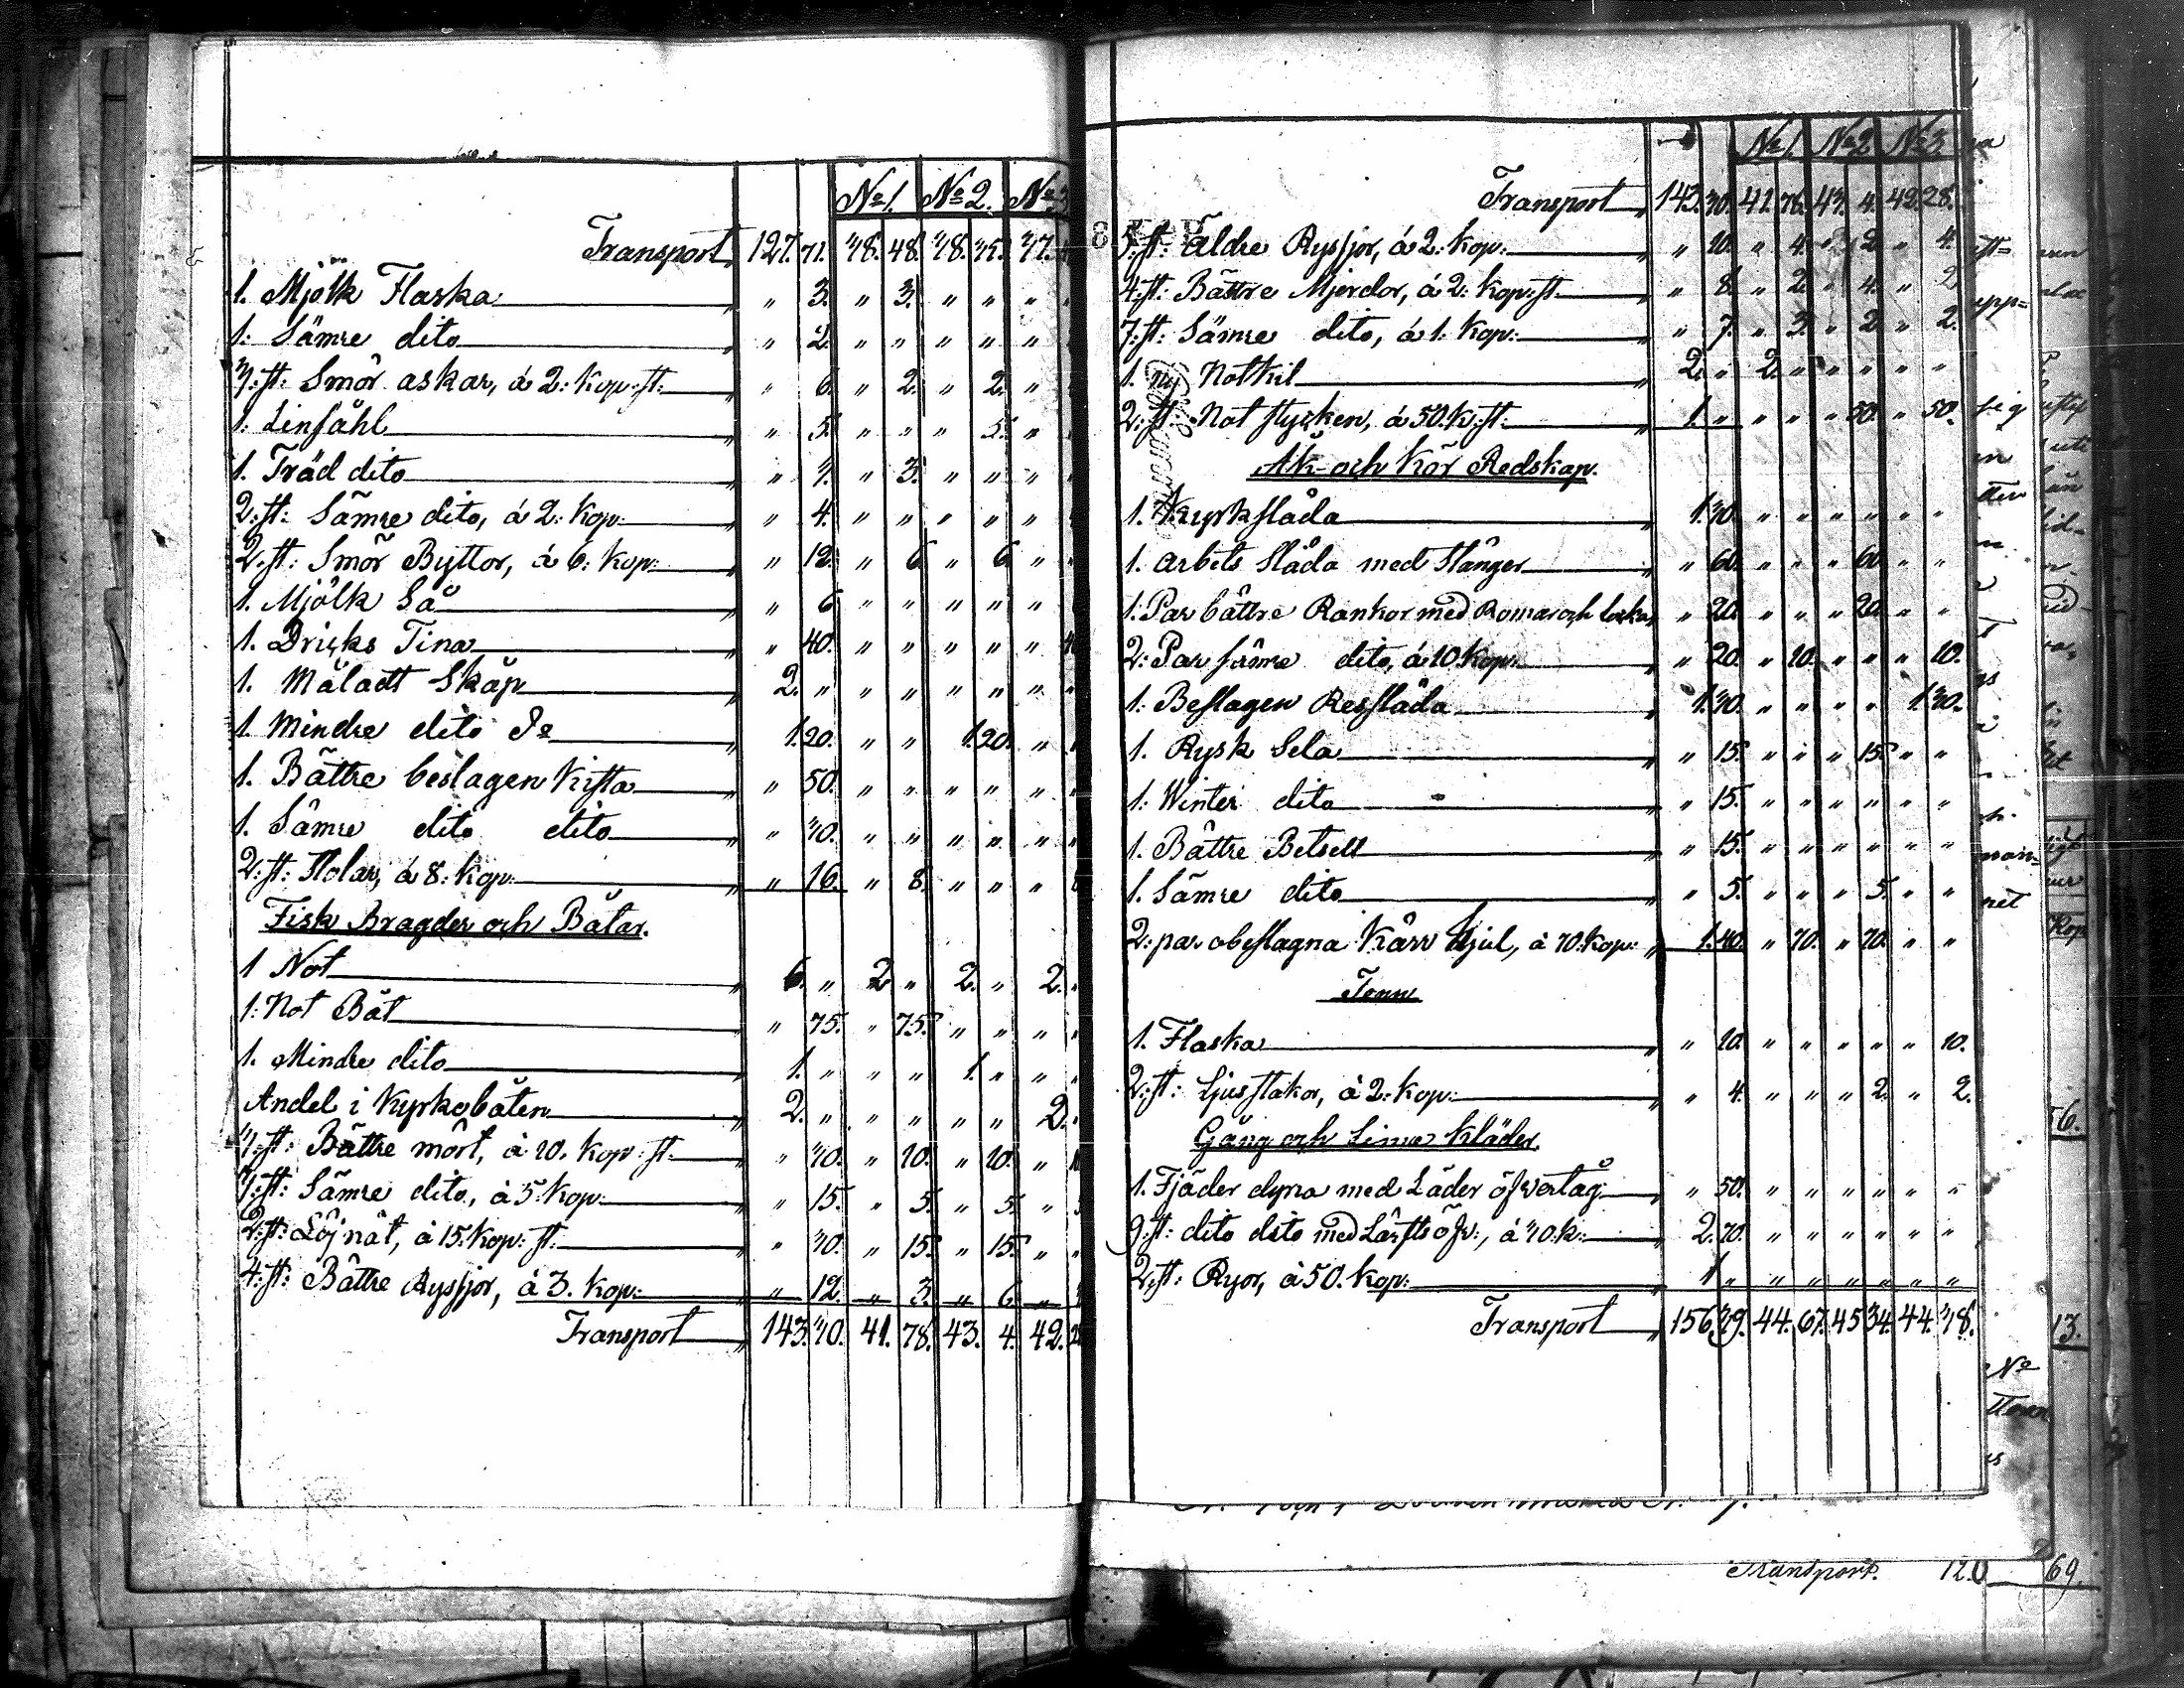 No 1. No 2. No 3
Transport 127. 71. 38. 48. 38. 75. 37.
1. Mjölk Flaska " 3. " 3. " " "
1: Sämre dito " 2. " " " " "
3: st: Smör askar, á 2: Kop: st: " 6. " 2. " 2. "
1: Linsåhl " 5. " " " 5. "
1. Träd dito " 3. " 3. " " "
2: st: Sämre dito, á 2: Kop: " 4. " " " " "
2: st: Smör Byttor, á 6: Kop: " 12. " 6. " 6. "
1. Mjölk Så " 6 " " " " "
1. Dricks Tina " 40. " " " " "
1. Måladt Skåp 2. " " " " " "
1. Mindre dito Do 1. 20. " " 1. 20. "
1. Bättre beslagen Kista " 50. " " " " "
1. Sämre dito dito " 30. " " " " "
2: st: Stolar, á 8: Kop: " 16. " 8. " " "
Fisk Bragder och Båtar.
1 Not 6. " 2 " 2. " 2.
1: Not Båt " 75. " 75. " " "
1. Mindre dito 1. " " " 1. " "
Andel i Kyrkobåten 2. " " " " " 2.
3: st: Bättre mört, á 10. Kop: st: " 30. " 10. " 10. "
3: st: Sämre dito, á 5: Kop: " 15. " 5. " 5. "
2: st: Löjnät, á 15: Kop: st: " 30. " 15. " 15. "
4: st: Bättre Rysjor, á 3. Kop: " 12. " 3. " 6. "
Transport 143. 30. 41. 78. 43. 4. 42.
No 1. No 2. No 3
Transport 143. 30. 41. 78. 43. 4. 42. 28.
5: st: äldre Rysjor, á 2: Kop: " 10. " 4. " 2. " 4.
4: st: Bättre Mjerdor, á 2: Kop: st: " 8. " 2. " 4. " 2
7: st: Sämre dito, á 1: Kop: " 7. " 3. " 2 " 2.
1. ny Notkil 2. " 2. " " " " "
2: st: Not stycken, á 50. K: st: 1. " " " " 50. " 50.
Åk- och Kör Redskap.
1. Kyrksläda 1. 30. " " " " " "
1. arbets släda med Stänger " 60. " " " 60. " "
1: Par bättre Rankor med " 20. " " " 20. " "
2: Par sämre dito, á 10 Kop: " 20. " 10. " " " 10.
1: Beslagen Ressläda 1. 30. " " " " 1. 30.
1. Rysk Sela " 15. " " " 15. " "
1: Winter dito " 15. " " " " " "
1. Bättre Betsell " 15. " " " " " "
1. Sämre dito " 5. " " " 5. " "
2: par obeslagna Kärr hjul, á 70. Kop: 1. 40. " 70. " 70. " "
Tenn
1. Flaska " 10. " " " " " 10.
2: st: Ljusstakor, á 2: Kop: " 4. " " " 2. " 2.
Gång och Linne Kläder.
1. Fjäder dyna med Läder öfvertåg: " 50. " " " " " "
9: st: dito dito med Lärfts öfv:, á 30. k: 2. 70. " " " " " "
2: st: Ryor, á 50. Kop: 1 " " " " " " "
Transport 156. 39. 44. 67. 45 34. 44. 38.
Transport. 120 69.